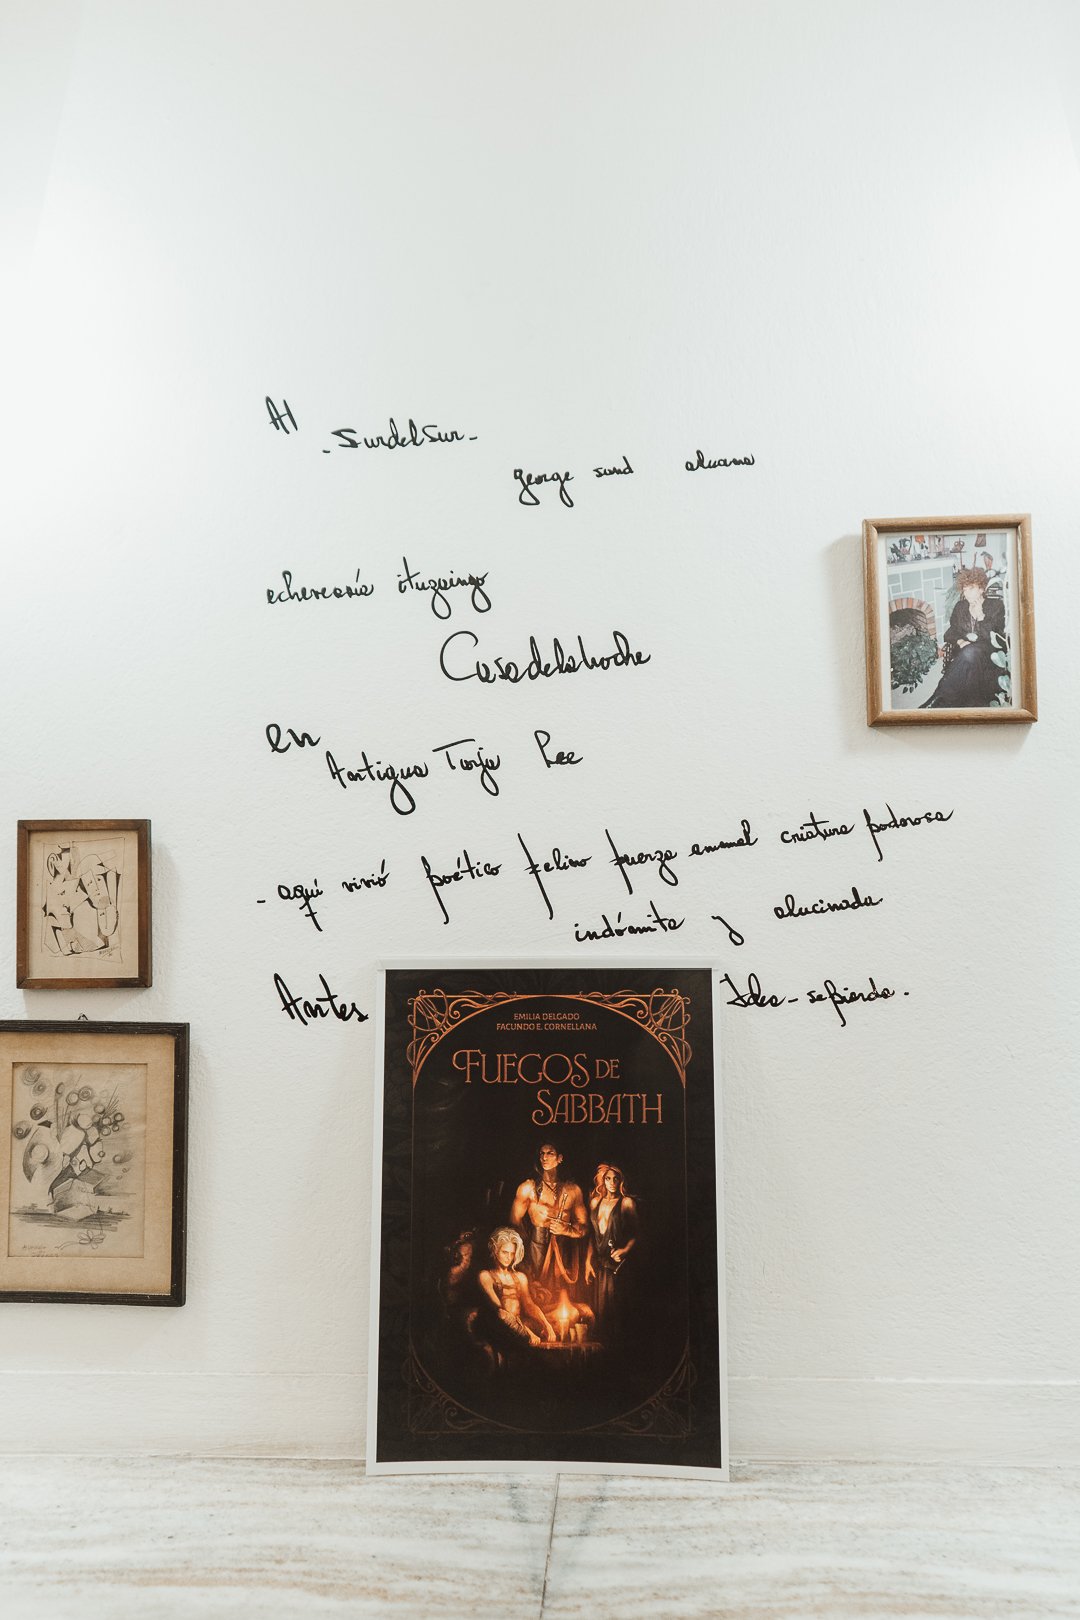 Al
-surdelsur-
george sand
echeverría ituzaingo
Casadelanoche
en
Antigua Tarja Lee
- aquí vivió poético felino fuerza animal criatura poderosa
indómita y alucinada
Antes
se pierda.
EMILIA DELGADO
FACUNDO E. CORNELLANA
FUEGOS DE
SABBATH